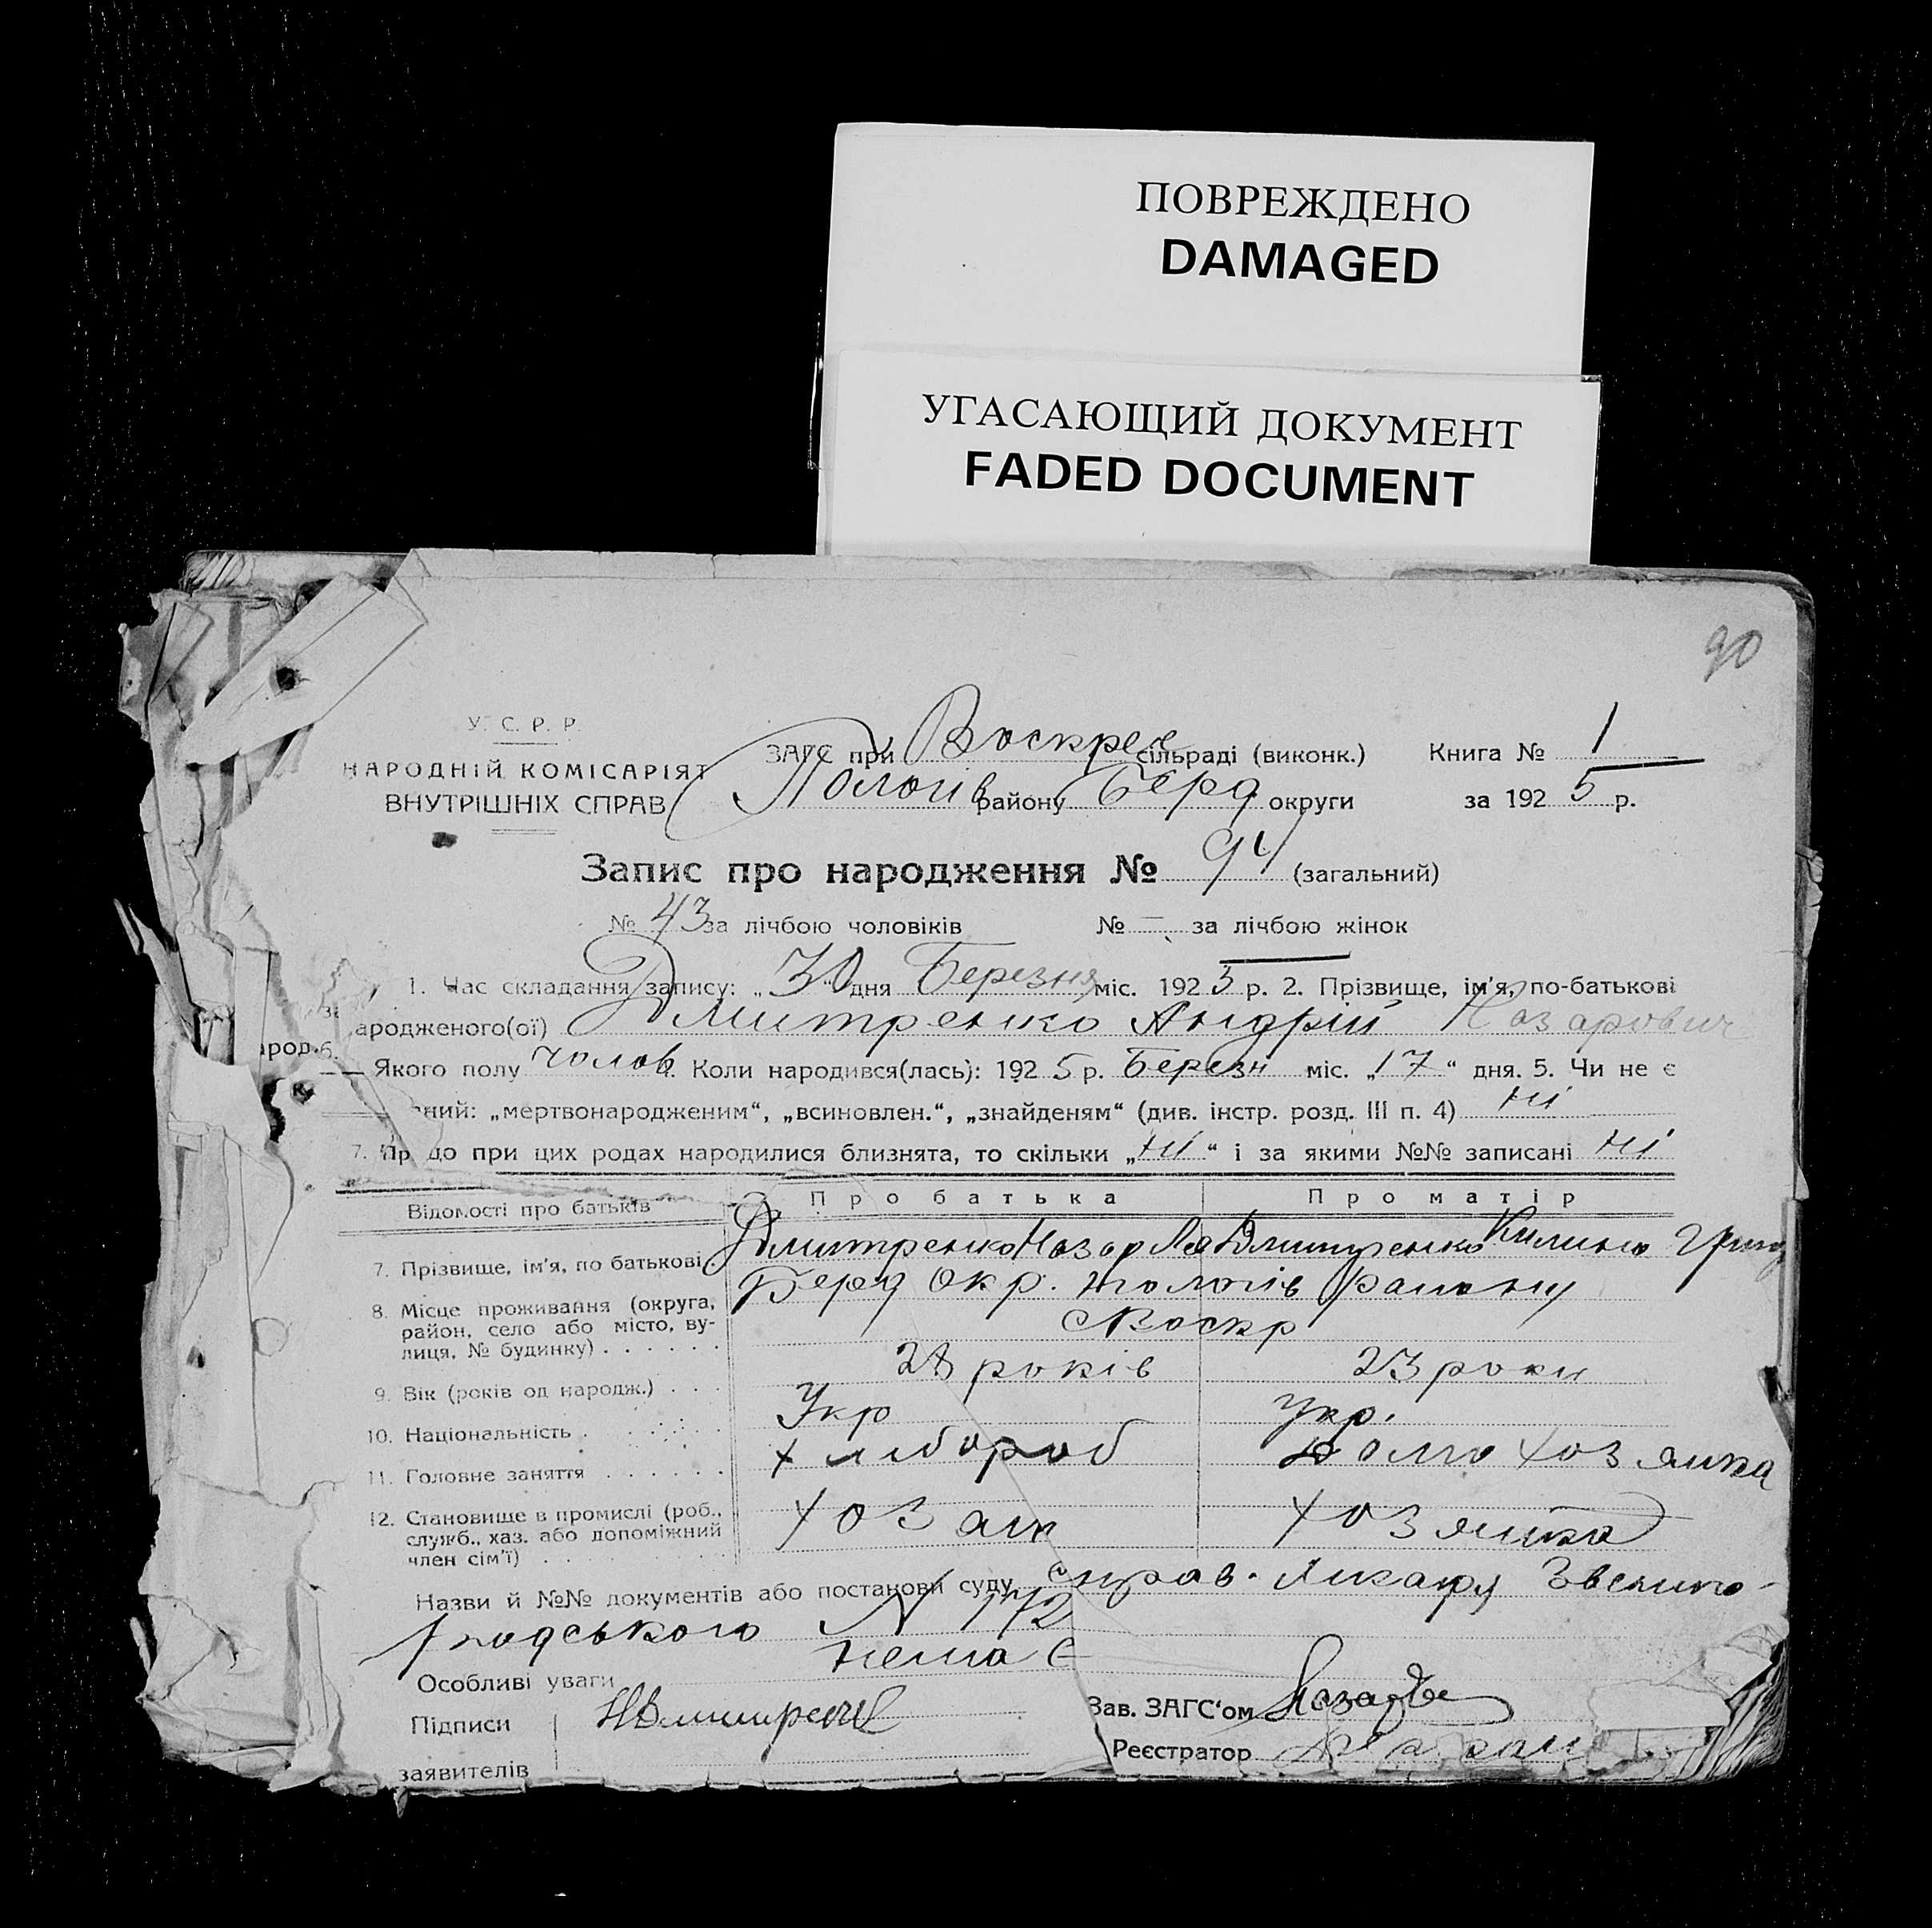 ПОВРЕЖДЕНО
DAMAGED
УГАСАЮЩИЙ ДОКУМЕНТ
FADED DOCUMENT
90
У. С. Р. Р.
НАРОДНІЙ КОМІСАРІЯТ
ВНУТРІШНІХ СПРАВ
ЗАГС при Воскрес сільраді (виконк.) Книга № 1
Пологів району Берд округи за 192 5 р.
Запис про народження № 94 (загальний)
№ 43 за лічбою чоловіків № — за лічбою жінок
1. Час складання запису: „30“ дня Березня міс. 192 5 р. 2. Прізвище, ім'я, по-батькові
ародженого(ої) Дмитренко Андрій Назарович
Якого полу чолов. Коли народився(лась): 192 5 р. Березн міс. „17“ дня. 5. Чи не є
ений: „мертвонародженим“, „всиновлен.“, „знайденям“ (див. інстр. розд. III п. 4) ні
до при цих родах народилися близнята, то скільки „ні“ і за якими №№ записані ні
Відомості про батьків Про батька Про матір
7. Прізвище, ім'я, по батькові. Дмитренко Назар Дмитренко Килина
8. Місце проживання (округа, район, село або місто, вулиця, № будинку) Берд Окр. Пологів району
Воскр
9. Вік (років од народж.) 28 років 23 роки
10. Національність Укр Укр.
11. Головне заняття хлібороб Домо хозяйка
12. Становище в промислі (роб., служб., хаз. або допоміжний член сім'ї) хозаин хозяйка
Назви й №№ документів або постанови суду справ. лікаря
№ 172
Особливі уваги немає
Підписи заявителів НДмитренк
Зав. ЗАГС‘ом
Реєстратор